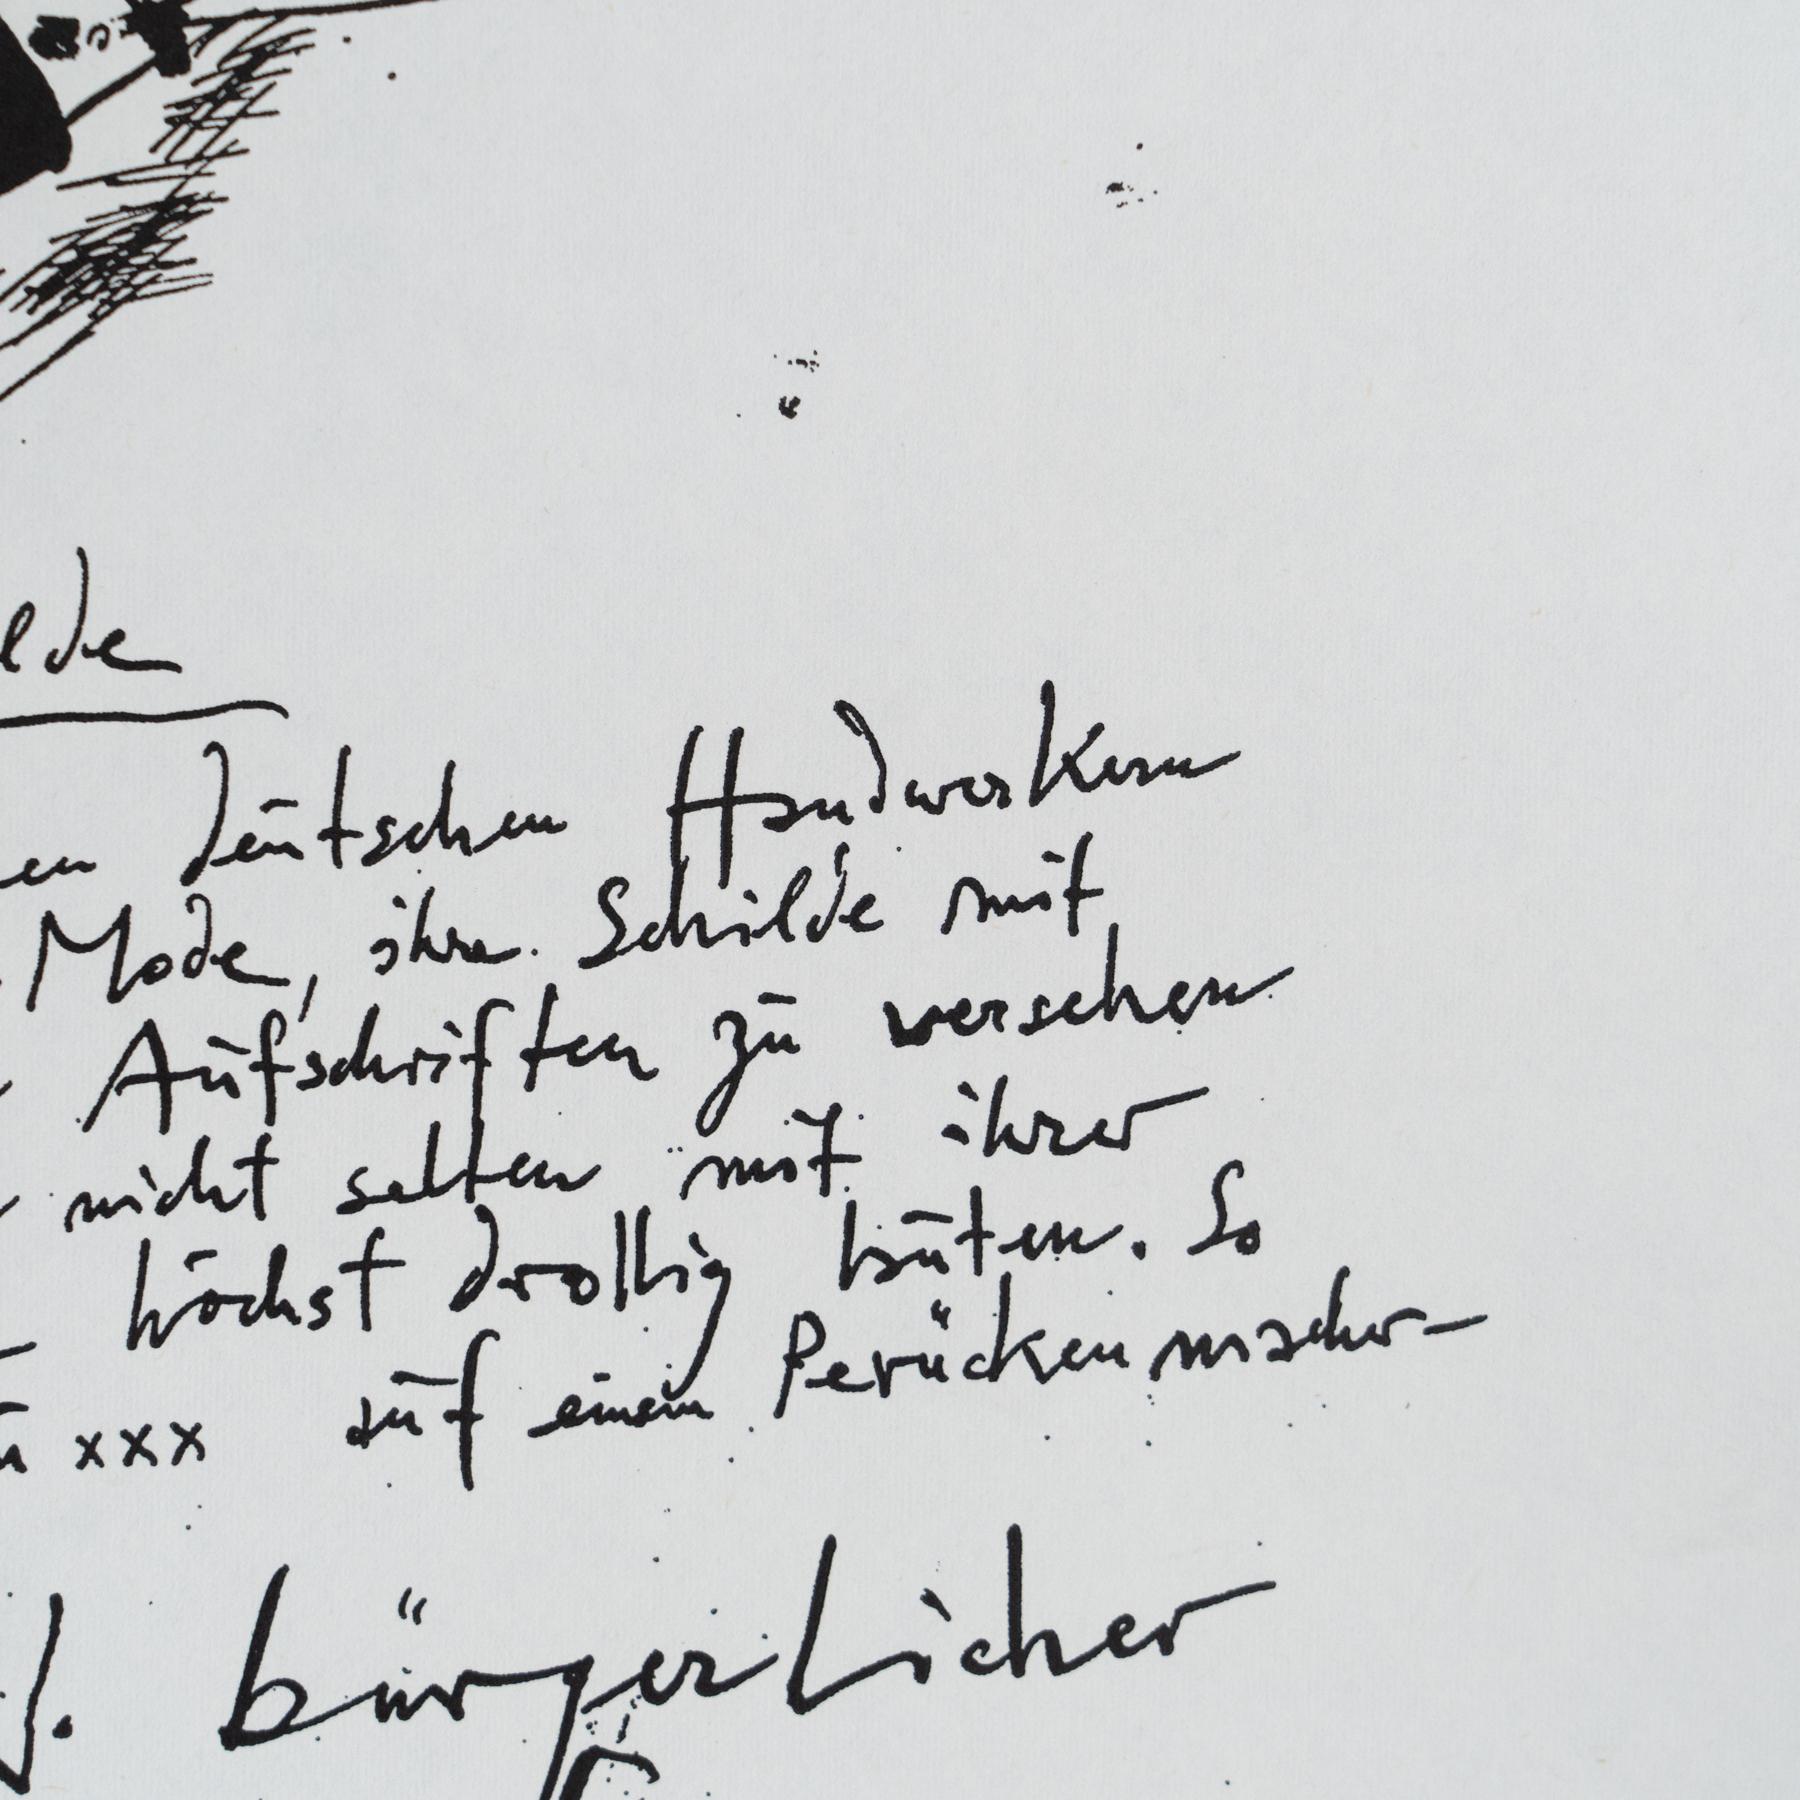 lde
en deutschen Handwerkern
Mode, ihre Schilde mit
Aufschriften zu versehen
nicht selten mit ihrer
höchst drollig lauten. So
xxx auf einem Perückenmacher-
J. bürgerlicher